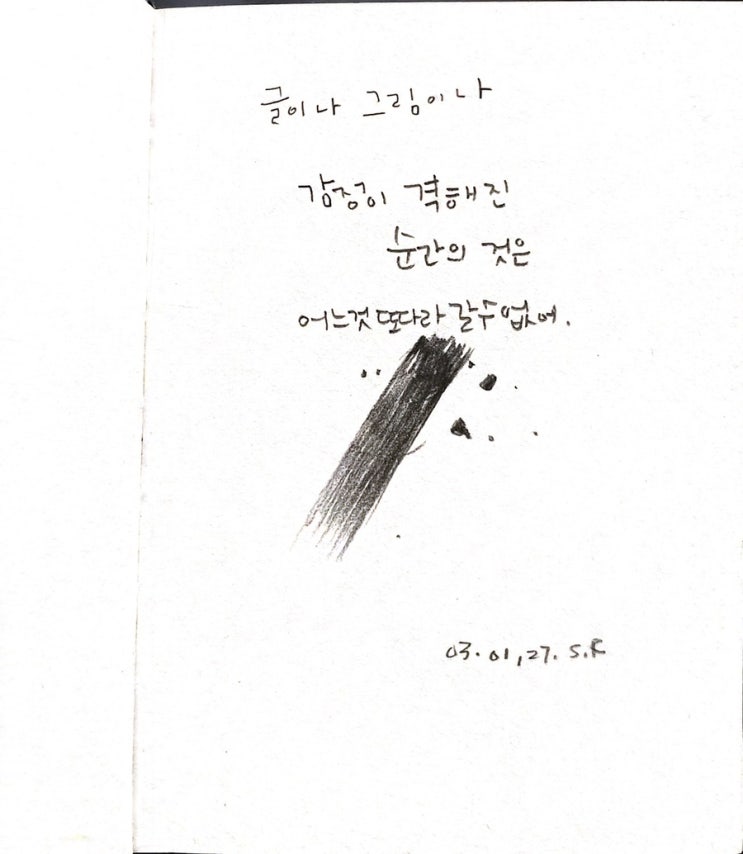 글이나 그림이나
감정이 격해진
순간의 것은
어느것도 따라 갈수 없어.
03.01,27. S.R